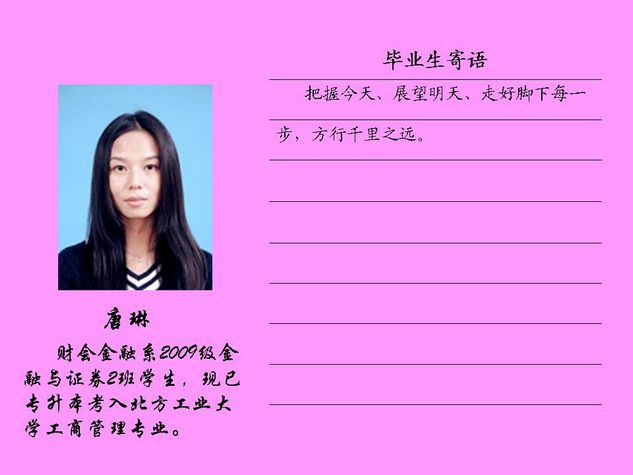 毕业生寄语
把握今天、展望明天、走好脚下每一
步，方行千里之远。
唐琳
财会金融系2009级金
融与证券2班学生，现已
专升本考入北方工业大
学工商管理专业。